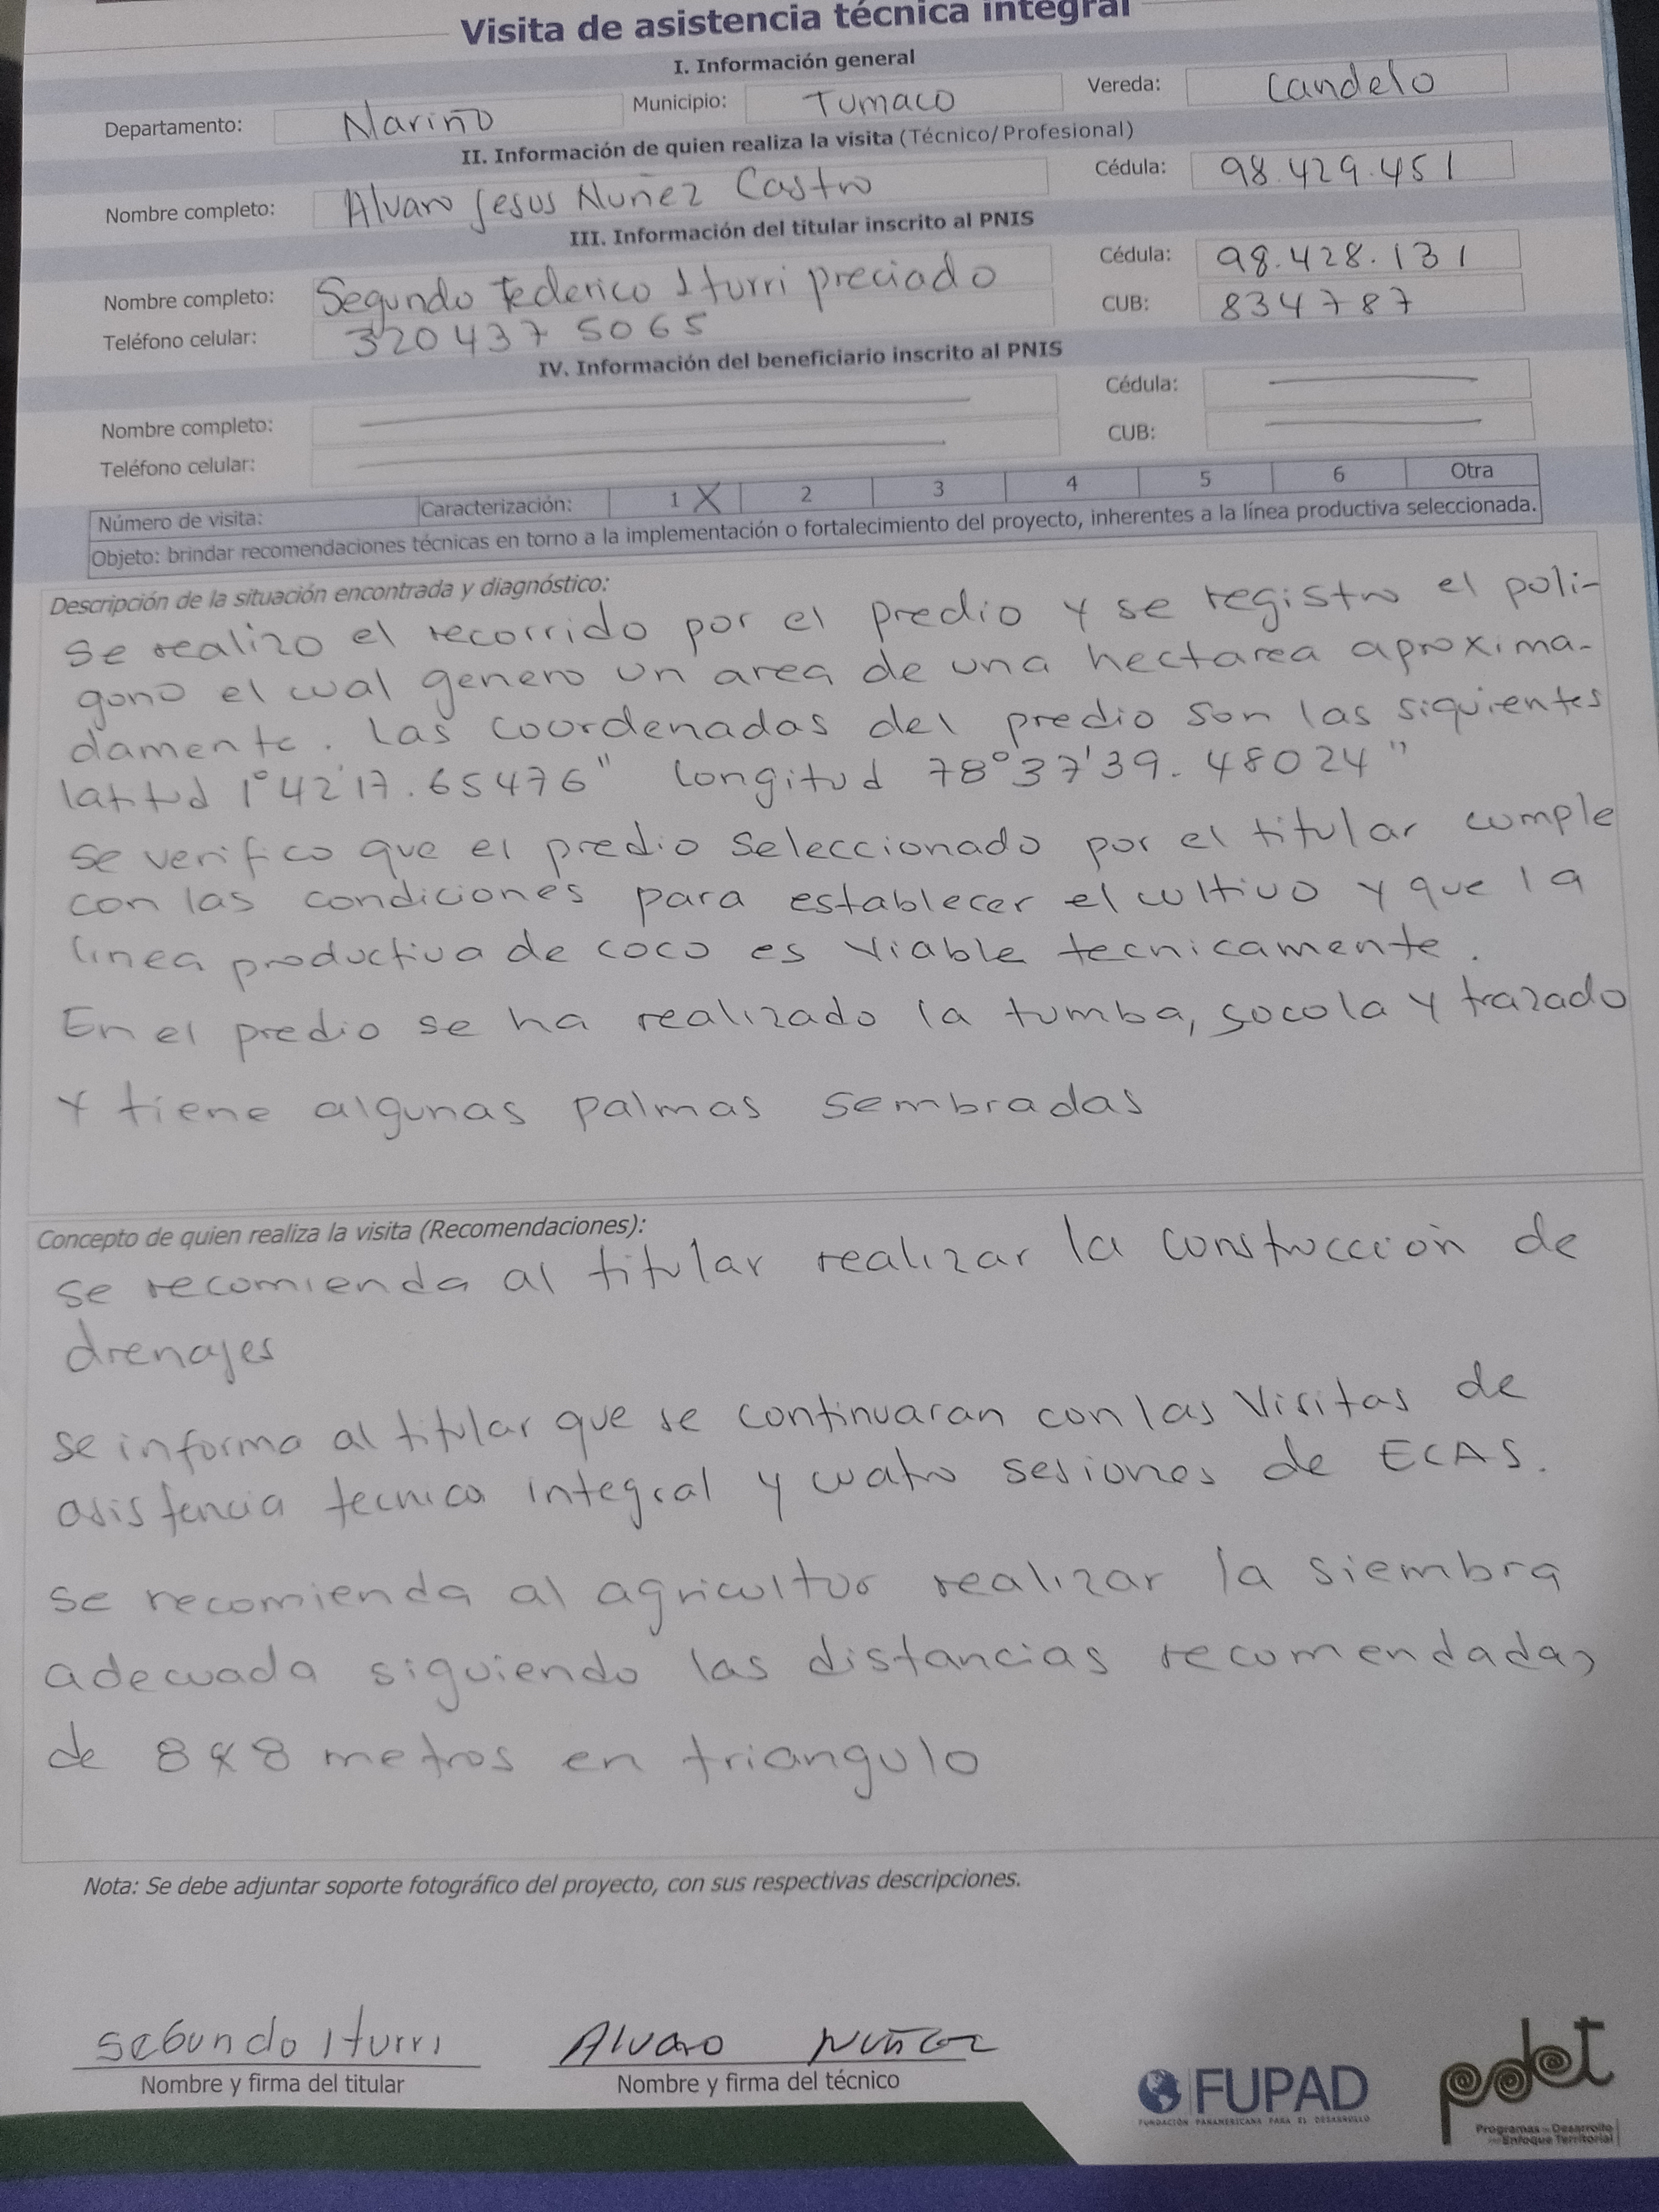 Visita de asistencia técnica integral
I. Información general
Departamento: Nariño Municipio: Tumaco Vereda: Candelo
II. Información de quien realiza la visita (Técnico/Profesional)
Nombre completo: Alvaro Jesus Nuñez Castro Cédula: 98.429.451
III. Información del titular inscrito al PNIS
Nombre completo: Segundo Federico Iturri preciado Cédula: 98.428.131
Teléfono celular: 320 437 5065 CUB: 834787
IV. Información del beneficiario inscrito al PNIS
Nombre completo: Cédula:
Teléfono celular: CUB:
Número de visita: Caracterización: 1 X 2 3 4 5 6 Otra
Objeto: brindar recomendaciones técnicas en torno a la implementación o fortalecimiento del proyecto, inherentes a la línea productiva seleccionada.
Descripción de la situación encontrada y diagnóstico:
Se realizo el recorrido por el predio y se registro el poli-
gono el cual genero un area de una hectarea aproxima-
damente. Las coordenadas del predio son las siguientes
latitud 1°42'17.65476" longitud 78°37'39.48024"
se verifico que el predio seleccionado por el titular cumple
con las condiciones para establecer el cultivo y que la
linea productiva de coco es viable tecnicamente.
En el predio se ha realizado la tumba, socola y trazado
y tiene algunas palmas sembradas
Concepto de quien realiza la visita (Recomendaciones):
se recomienda al titular realizar la construcción de
drenajes
se informa al titular que se continuaran con las visitas de
asistencia tecnica integral y cuatro sesiones de ECAS.
se recomienda al agricultor realizar la siembra
adecuada siguiendo las distancias recomendadas
de 8x8 metros en triangulo
Nota: Se debe adjuntar soporte fotográfico del proyecto, con sus respectivas descripciones.
segundo Iturri Alvaro Nuñez
Nombre y firma del titular Nombre y firma del técnico
FUPAD
FUNDACIÓN PANAMERICANA PARA EL DESARROLLO
pdet
Programas de Desarrollo
con Enfoque Territorial